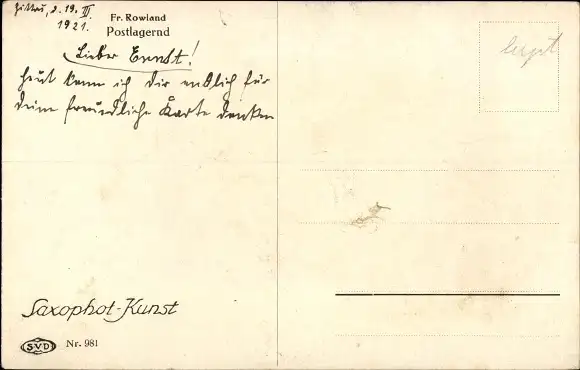 Zittau, d. 19. III.
1921.
Fr. Rowland
Postlagernd
Lieber Ernst!
heut kann ich dir endlich für
deine freundliche Karte danken
Saxophot-Kunst
SVD
Nr. 981